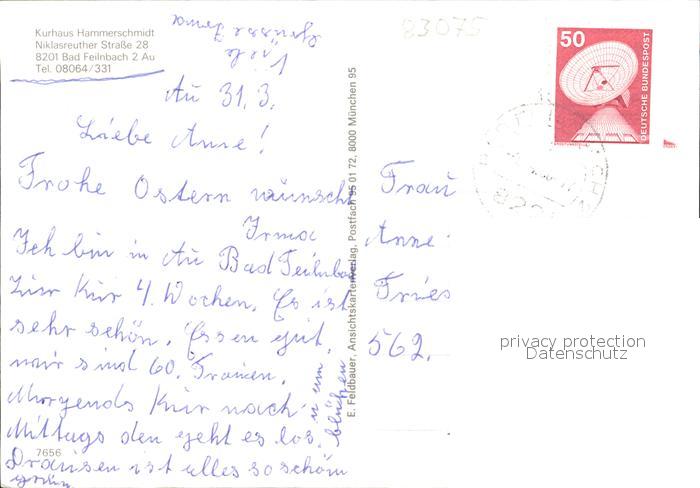 Kurhaus Hammerschmidt
Niklasreuther Straße 28
8201 Bad Feilnbach 2 Au
Tel. 08064/331
83075
50
DEUTSCHE BUNDESPOST
Viele
Grüsse Irma
Au 31.3.
Liebe Anne!
Frohe Ostern wünscht
Irma
Ich bin in Au Bad Feilnbach
zur Kur 4. Wochen. Es ist
sehr schön. Essen gut,
wir sind 60. Frauen.
Morgends Kur nach
Mittags den geht es los.
Drausen ist alles so schöm
grün
u am
blühen
7656
E. Feldbauer, Ansichtskartenverlag, Postfach 95 01 72, 8000 München 95
Frau
Anne
Fries
562.
privacy protection
Datenschutz